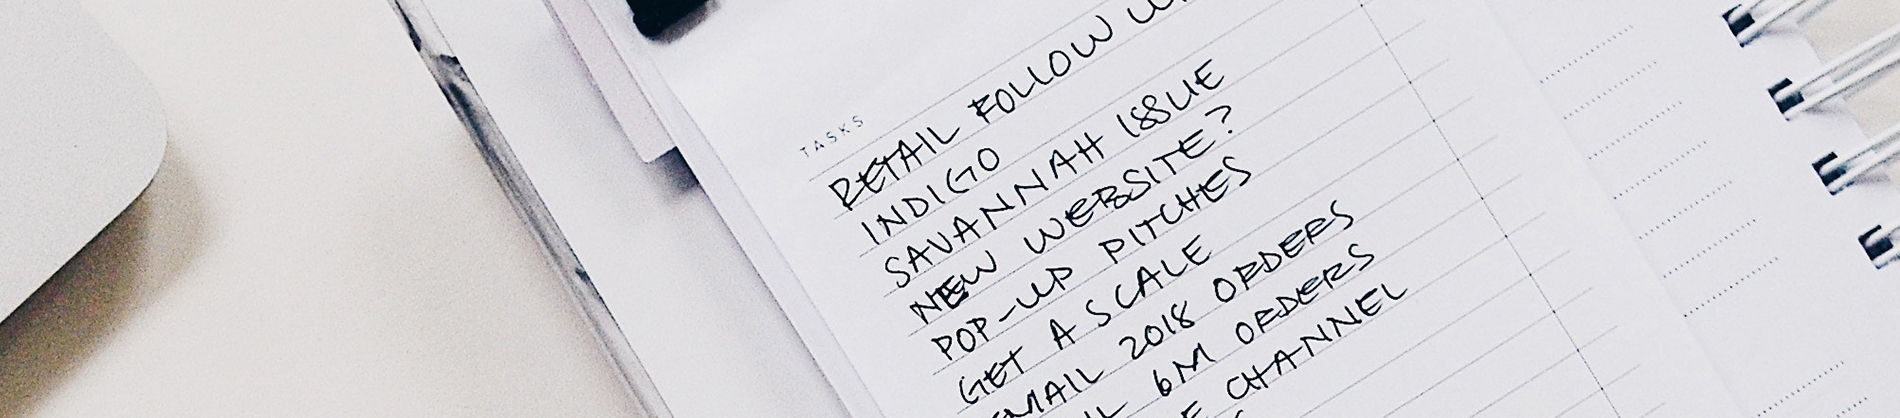 TASKS
RETAIL FOLLOW
INDIGO
SAVANNAH ISSUE
NEW WEBSITE?
POP-UP PITCHES
GET A SCALE
EMAIL 2018 ORDERS
6M ORDERS
CHANNEL